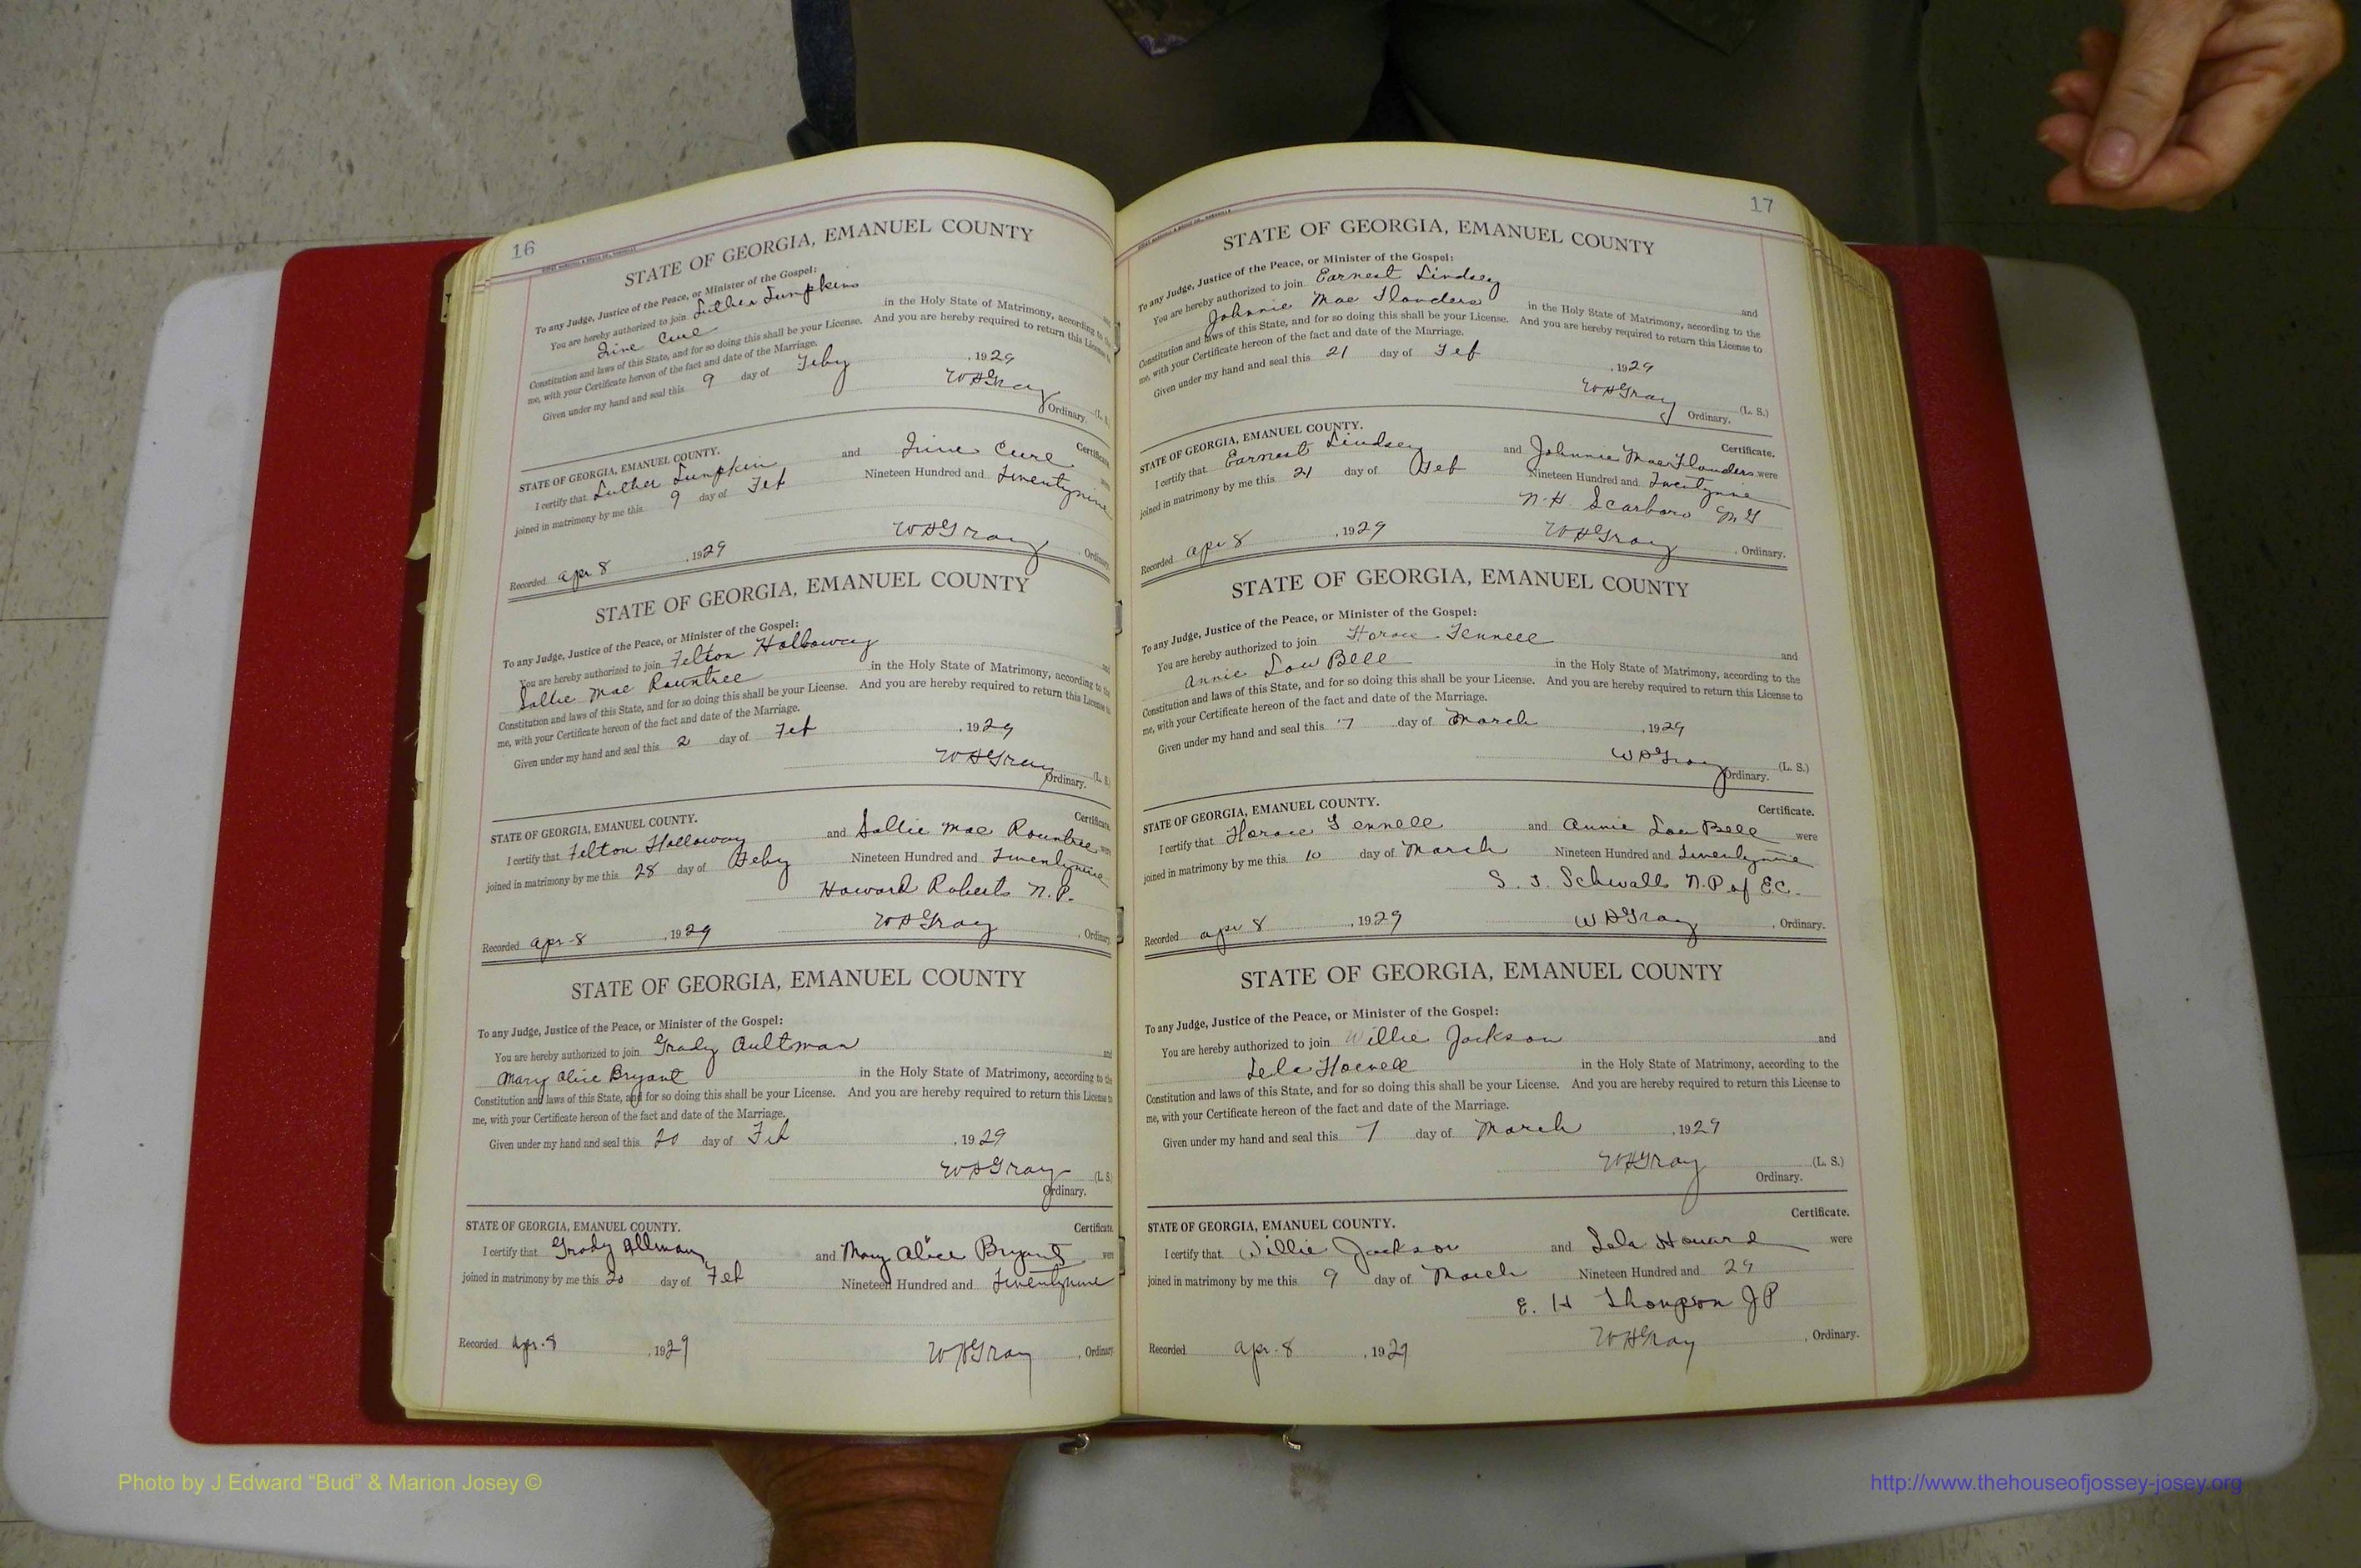 16
STATE OF GEORGIA, EMANUEL COUNTY
To any Judge, Justice of the Peace, or Minister of the Gospel:
You are hereby authorized to join Luther Lumpkins and
Cure in the Holy State of Matrimony, according to the
Constitution and laws of this State, and for so doing this shall be your License. And you are hereby required to return this License to
me, with your Certificate hereon of the fact and date of the Marriage.
Given under my hand and seal this 9 day of Feby , 1929
WHGray (L. S.)
Ordinary.
STATE OF GEORGIA, EMANUEL COUNTY. Certificate.
I certify that Luther Lumpkin and Cure were
joined in matrimony by me this 9 day of Feb Nineteen Hundred and Twentynine
Recorded Apr 8 , 1929 WHGray , Ordinary.
STATE OF GEORGIA, EMANUEL COUNTY
To any Judge, Justice of the Peace, or Minister of the Gospel:
You are hereby authorized to join Felton Holloway and
Sallie Mae Rountree in the Holy State of Matrimony, according to the
Constitution and laws of this State, and for so doing this shall be your License. And you are hereby required to return this License to
me, with your Certificate hereon of the fact and date of the Marriage.
Given under my hand and seal this 2 day of Feb , 1929
WHGray (L. S.)
Ordinary.
STATE OF GEORGIA, EMANUEL COUNTY. Certificate.
I certify that Felton Holloway and Sallie Mae Rountree were
joined in matrimony by me this 28 day of Feby Nineteen Hundred and Twentynine
Howard Roberts N.P.
Recorded Apr-8 , 1929 WHGray , Ordinary
STATE OF GEORGIA, EMANUEL COUNTY
To any Judge, Justice of the Peace, or Minister of the Gospel:
You are hereby authorized to join Grady Aultman and
Mary Alice Bryant in the Holy State of Matrimony, according to the
Constitution and laws of this State, and for so doing this shall be your License. And you are hereby required to return this License to
me, with your Certificate hereon of the fact and date of the Marriage.
Given under my hand and seal this 20 day of Feb , 1929
WHGray (L. S
Ordinary.
STATE OF GEORGIA, EMANUEL COUNTY. Certificate.
I certify that Grady Allman and Mary Alice Bryant were
joined in matrimony by me this 20 day of Feb Nineteen Hundred and Twentynine
Recorded Apr. 8 , 1929 WHGray , Ordinary
17
STATE OF GEORGIA, EMANUEL COUNTY
To any Judge, Justice of the Peace, or Minister of the Gospel:
You are hereby authorized to join Earnest Lindsey and
Johnnie Mae Flanders in the Holy State of Matrimony, according to the
Constitution and laws of this State, and for so doing this shall be your License. And you are hereby required to return this License to
me, with your Certificate hereon of the fact and date of the Marriage.
Given under my hand and seal this 21 day of Feb , 1929
WHGray (L. S.)
Ordinary.
STATE OF GEORGIA, EMANUEL COUNTY. Certificate.
I certify that Earnest Lindsey and Johnnie Mae Flanders were
joined in matrimony by me this 21 day of Feb Nineteen Hundred and Twentynine
N. H. Scarboro M G
Recorded Apr 8 , 1929 WHGray , Ordinary.
STATE OF GEORGIA, EMANUEL COUNTY
To any Judge, Justice of the Peace, or Minister of the Gospel:
You are hereby authorized to join Horace Fennell and
Annie Lou Bell in the Holy State of Matrimony, according to the
Constitution and laws of this State, and for so doing this shall be your License. And you are hereby required to return this License to
me, with your Certificate hereon of the fact and date of the Marriage.
Given under my hand and seal this 7 day of March , 1929
WHGray (L. S.)
Ordinary.
STATE OF GEORGIA, EMANUEL COUNTY. Certificate.
I certify that Horace Fennell and Annie Lou Bell were
joined in matrimony by me this 10 day of March Nineteen Hundred and Twentynine
S. J. Schwall N.P of EC.
Recorded Apr 8 , 1929 WHGray , Ordinary.
STATE OF GEORGIA, EMANUEL COUNTY
To any Judge, Justice of the Peace, or Minister of the Gospel:
You are hereby authorized to join Willie Jackson and
Lela Howell in the Holy State of Matrimony, according to the
Constitution and laws of this State, and for so doing this shall be your License. And you are hereby required to return this License to
me, with your Certificate hereon of the fact and date of the Marriage.
Given under my hand and seal this 7 day of March , 1929
WHGray (L. S.)
Ordinary.
STATE OF GEORGIA, EMANUEL COUNTY. Certificate.
I certify that Willie Jackson and Lela Howard were
joined in matrimony by me this 9 day of March Nineteen Hundred and 29
E. H Thonpson JP
Recorded Apr. 8 , 1929 WHGray , Ordinary.
Photo by J Edward “Bud” & Marion Josey ©
http://www.thehouseofjossey-josey.org